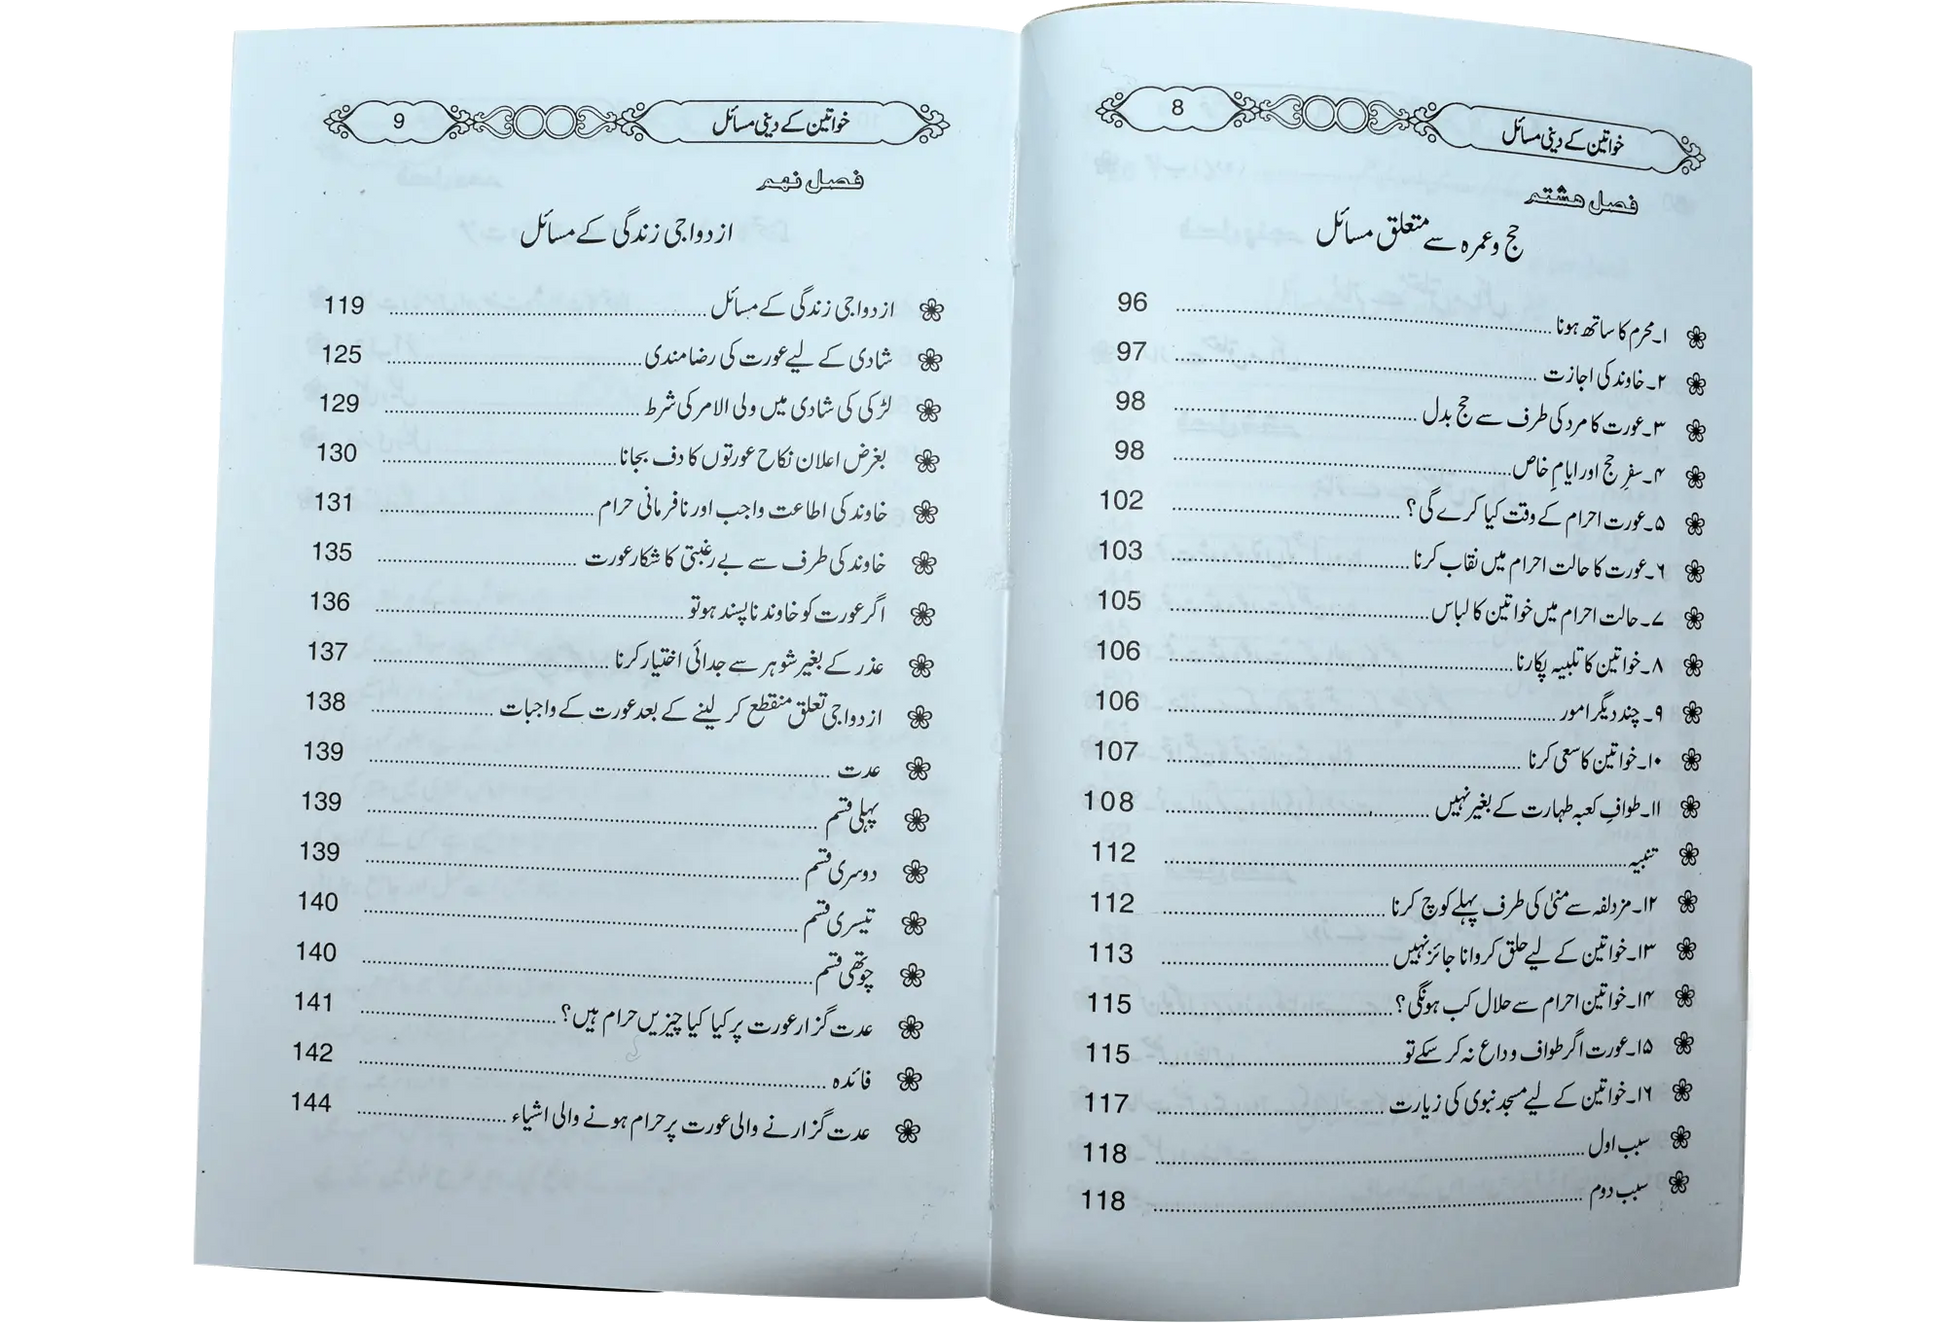 خواتین کے دینی مسائل 8
فصل ہشتم
حج و عمرہ سے متعلق مسائل
۱۔محرم کا ساتھ ہونا 96
۲۔خاوند کی اجازت 97
۳۔عورت کا مرد کی طرف سے حج بدل 98
۴۔سفرِ حج اور ایامِ خاص 98
۵۔عورت احرام کے وقت کیا کرے گی؟ 102
۶۔عورت کا حالت احرام میں نقاب کرنا 103
۷۔حالت احرام میں خواتین کا لباس 105
۸۔خواتین کا تلبیہ پکارنا 106
۹۔چند دیگر امور 106
۱۰۔خواتین کا سعی کرنا 107
۱۱۔طوافِ کعبہ طہارت کے بغیر نہیں 108
تنبیہ 112
۱۲۔مزدلفہ سے منیٰ کی طرف پہلے کوچ کرنا 112
۱۳۔خواتین کے لیے حلق کروانا جائز نہیں 113
۱۴۔خواتین احرام سے حلال کب ہونگی؟ 115
۱۵۔عورت اگر طواف وداع نہ کر سکے تو 115
۱۶۔خواتین کے لیے مسجد نبوی کی زیارت 117
سبب اول 118
سبب دوم 118
خواتین کے دینی مسائل 9
فصل نہم
ازدواجی زندگی کے مسائل
ازدواجی زندگی کے مسائل 119
شادی کے لیے عورت کی رضا مندی 125
لڑکی کی شادی میں ولی الامر کی شرط 129
بغرض اعلان نکاح عورتوں کا دف بجانا 130
خاوند کی اطاعت واجب اور نافرمانی حرام 131
خاوند کی طرف سے بے رغبتی کا شکار عورت 135
اگر عورت کو خاوند ناپسند ہو تو 136
عذر کے بغیر شوہر سے جدائی اختیار کرنا 137
ازدواجی تعلق منقطع کر لینے کے بعد عورت کے واجبات 138
عدت 139
پہلی قسم 139
دوسری قسم 139
تیسری قسم 140
چوتھی قسم 140
عدت گزار عورت پر کیا کیا چیزیں حرام ہیں؟ 141
فائدہ 142
عدت گزارنے والی عورت پر حرام ہونے والی اشیاء 144